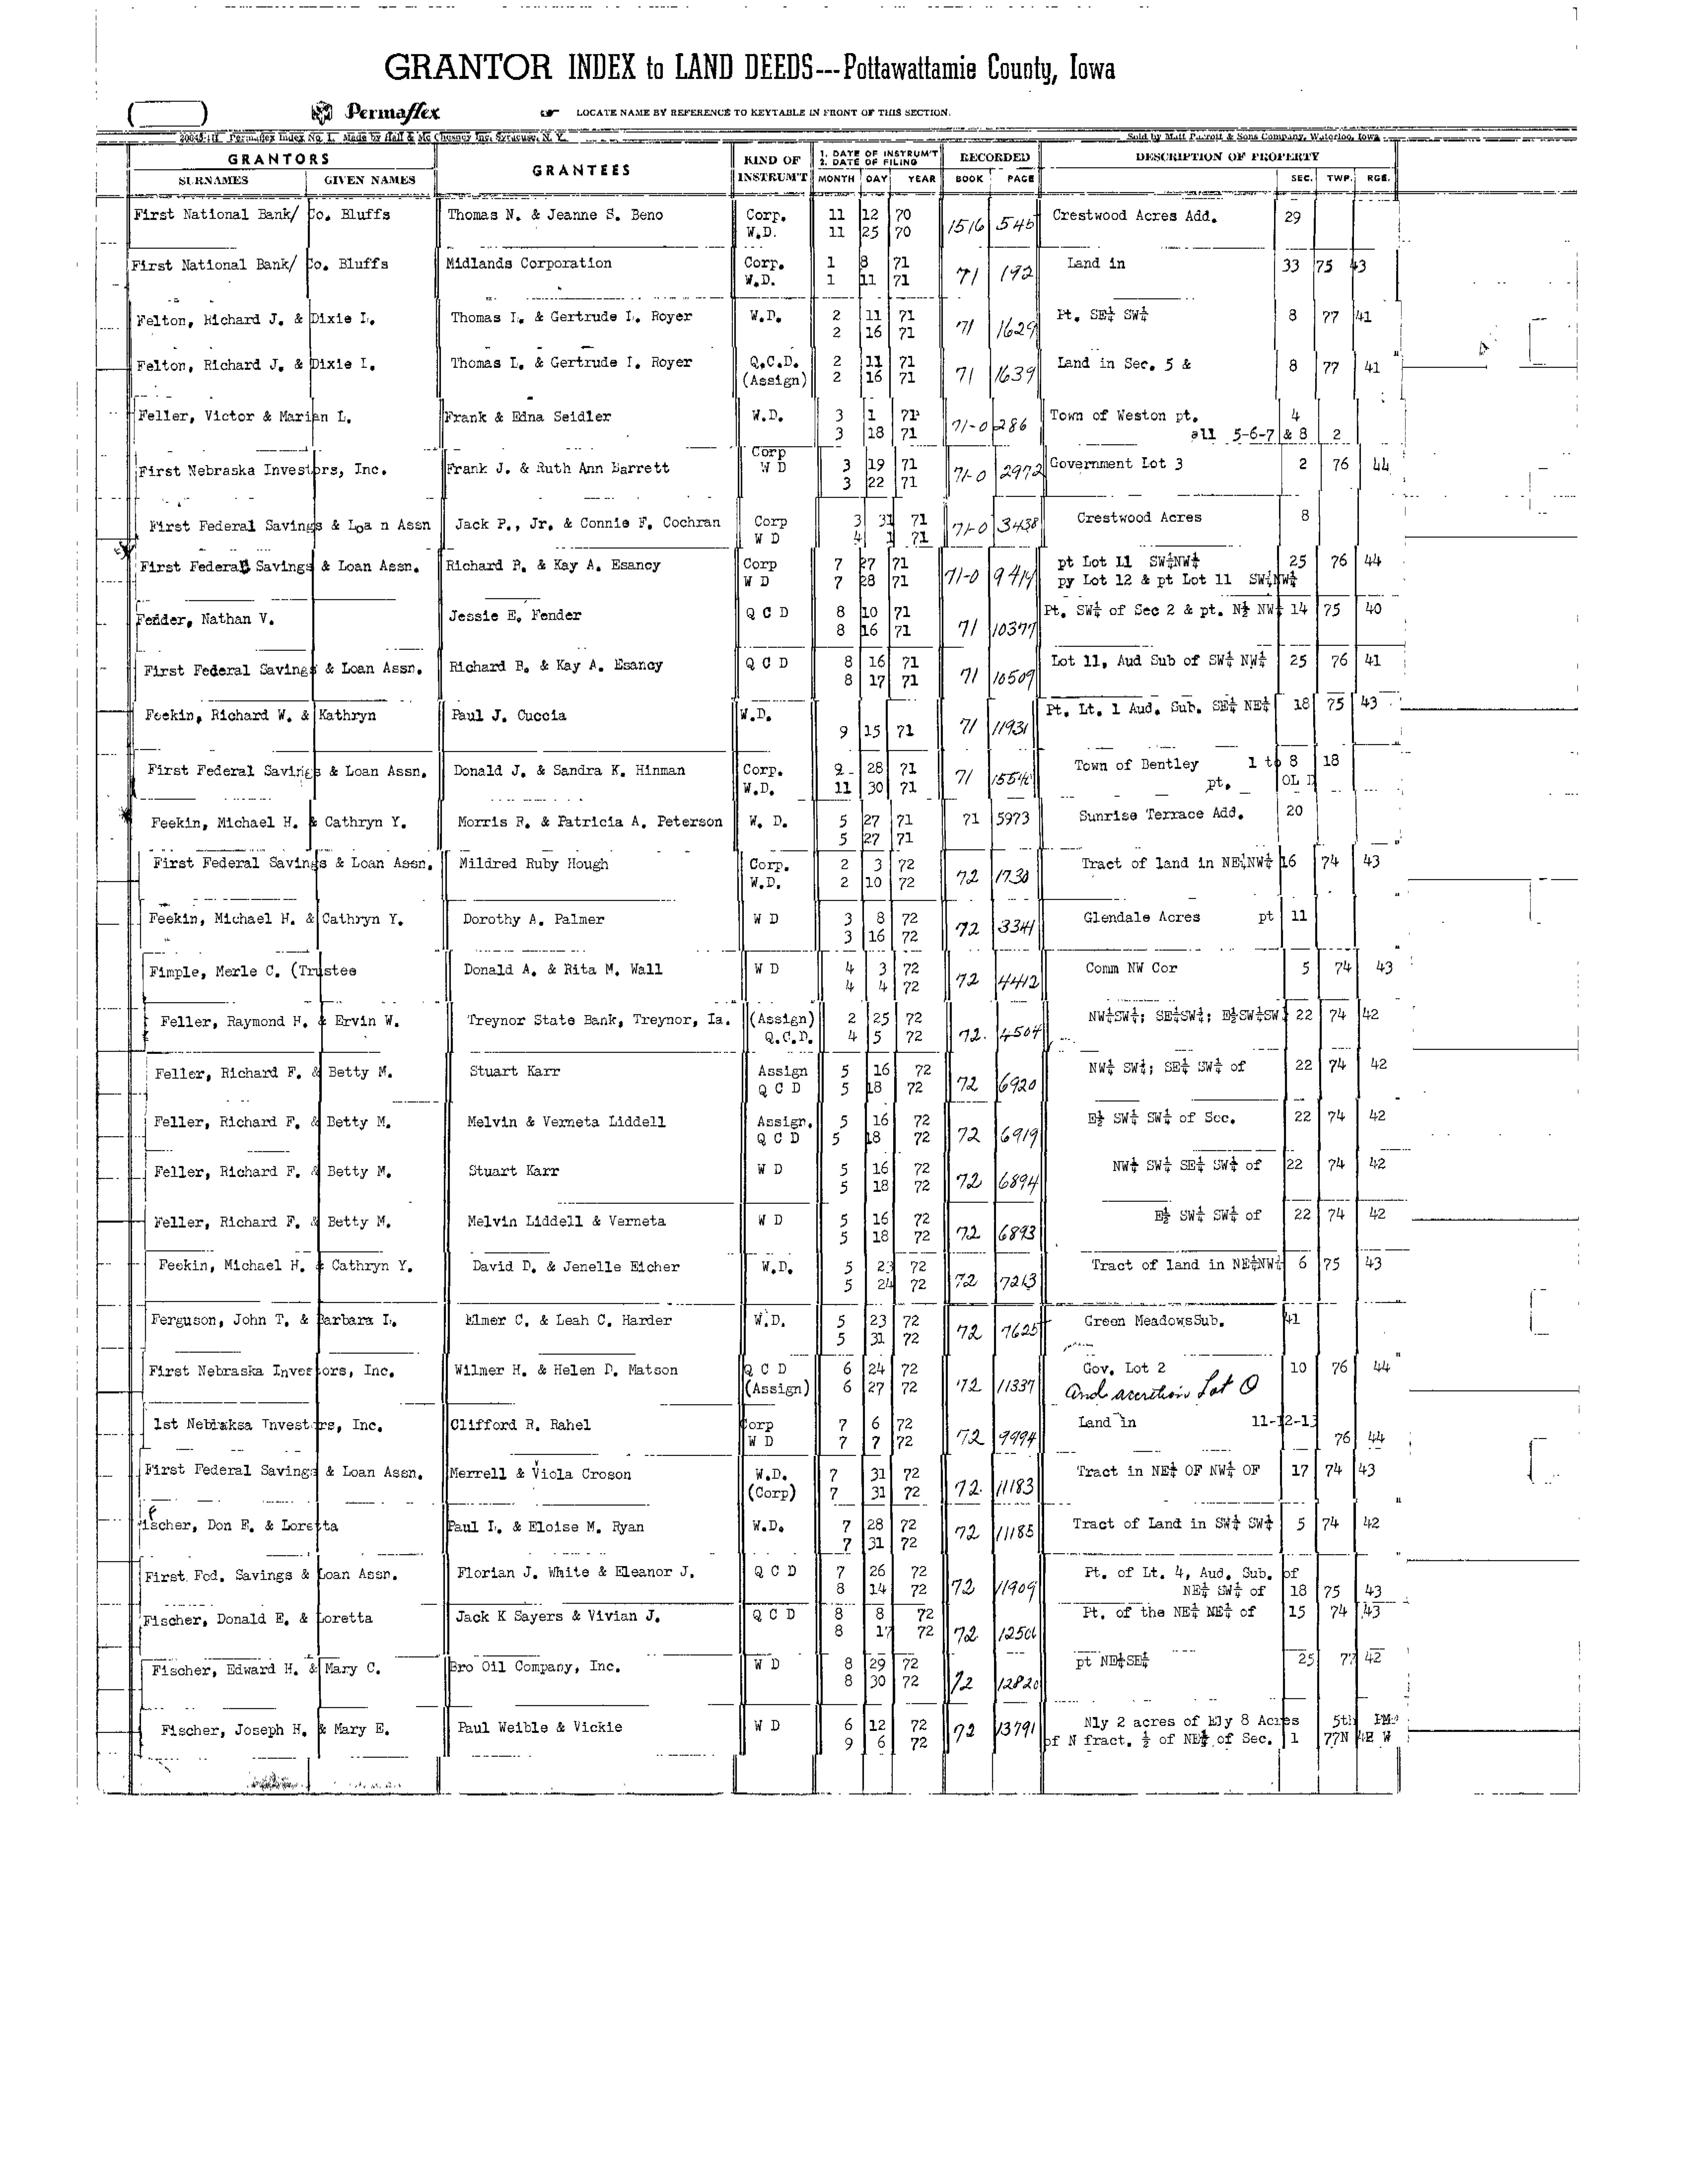 GRANTOR INDEX to LAND DEEDS---Pottawattamie County, Iowa
Permaflex LOCATE NAME BY REFERENCE TO KEYTABLE IN FRONT OF THIS SECTION.
20045-1H Permaflex Index No. 1. Made by Hall & Mc Chesney Inc. Syracuse, N. Y. Sold by Matt Parrott & Sons Company, Waterloo, Iowa
GRANTORS GRANTEES KIND OF INSTRUM'T 1. DATE OF INSTRUM'T 2. DATE OF FILING RECORDED DESCRIPTION OF PROPERTY
SURNAMES GIVEN NAMES MONTH DAY YEAR BOOK PAGE SEC. TWP. RGE.
First National Bank/ Co. Bluffs Thomas N. & Jeanne S. Beno Corp. 11 12 70 1516 545 Crestwood Acres Add. 29
W.D. 11 25 70
First National Bank/ Co. Bluffs Midlands Corporation Corp. 1 8 71 71 192 Land in 33 75 43
W.D. 1 11 71
Felton, Richard J. & Dixie L. Thomas L. & Gertrude L. Royer W.D. 2 11 71 71 1629 Pt. SE¼ SW¼ 8 77 41
2 16 71
Felton, Richard J. & Dixie I. Thomas L. & Gertrude I. Royer Q.C.D. 2 11 71 71 1639 Land in Sec. 5 & 8 77 41
(Assign) 2 16 71
Feller, Victor & Marian L. Frank & Edna Seidler W.D. 3 1 71 71-0 286 Town of Weston pt. 4
3 18 71 all 5-6-7 & 8 2
First Nebraska Investors, Inc. Frank J. & Ruth Ann Barrett Corp W D 3 19 71 71-0 2972 Government Lot 3 2 76 44
3 22 71
First Federal Savings & Loa n Assn Jack P., Jr. & Connie F. Cochran Corp 3 31 71 71-0 3438 Crestwood Acres 8
W D 4 1 71
First Federal Savings & Loan Assn. Richard R. & Kay A. Esancy Corp 7 27 71 71-0 9414 pt Lot 11 SW¼NW¼ 25 76 44
W D 7 28 71 py Lot 12 & pt Lot 11 SW¼NW¼
Fender, Nathan V. Jessie E. Fender Q C D 8 10 71 71 10377 Pt. SW¼ of Sec 2 & pt. N½ NW¼ 14 75 40
8 16 71
First Federal Savings & Loan Assn. Richard R. & Kay A. Esancy Q C D 8 16 71 71 10509 Lot 11, Aud Sub of SW¼ NW¼ 25 76 41
8 17 71
Feekin, Richard W. & Kathryn Paul J. Cuccia W.D. 9 15 71 71 11931 Pt. Lt. 1 Aud. Sub. SE¼ NE¼ 18 75 43
First Federal Savings & Loan Assn. Donald J. & Sandra K. Hinman Corp. 9 28 71 71 Town of Bentley 1 to 8 18
W.D. 11 30 71 pt. OL
Feekin, Michael H. & Cathryn Y. Morris R. & Patricia A. Peterson W. D. 5 27 71 71 5973 Sunrise Terrace Add. 20
5 27 71
First Federal Savings & Loan Assn. Mildred Ruby Hough Corp. 2 3 72 72 1730 Tract of land in NE¼NW¼ 16 74 43
W.D. 2 10 72
Feekin, Michael H. & Cathryn Y. Dorothy A. Palmer W D 3 8 72 72 3341 Glendale Acres pt 11
3 16 72
Fimple, Merle C. (Trustee Donald A. & Rita M. Wall W D 4 3 72 72 4412 Comm NW Cor 5 74 43
4 4 72
Feller, Raymond H. & Ervin W. Treynor State Bank, Treynor, Ia. (Assign) 2 25 72 72 4504 NW¼SW¼; SE¼SW¼; E½SW¼SW 22 74 42
Q.C.D. 4 5 72
Feller, Richard F. & Betty M. Stuart Karr Assign 5 16 72 72 6920 NW¼ SW¼; SE¼ SW¼ of 22 74 42
Q C D 5 18 72
Feller, Richard F. & Betty M. Melvin & Verneta Liddell Assign. 5 16 72 72 6919 E½ SW¼ SW¼ of Sec. 22 74 42
Q C D 5 18 72
Feller, Richard F. & Betty M. Stuart Karr W D 5 16 72 72 6894 NW¼ SW¼ SE¼ SW¼ of 22 74 42
5 18 72
Feller, Richard F. & Betty M. Melvin Liddell & Verneta W D 5 16 72 72 6893 E½ SW¼ SW¼ of 22 74 42
5 18 72
Feekin, Michael H. & Cathryn Y. David D. & Jenelle Eicher W.D. 5 23 72 72 7213 Tract of land in NE¼NW¼ 6 75 43
5 24 72
Ferguson, John T. & Barbara L. Elmer C. & Leah C. Harder W.D. 5 23 72 72 7625 Green MeadowsSub. 41
5 31 72
First Nebraska Investors, Inc. Wilmer H. & Helen D. Matson Q C D 6 24 72 72 11337 Gov. Lot 2 10 76 44
(Assign) 6 27 72 And accretion Lot O
1st Nebraksa Investors, Inc. Clifford R. Rahel Corp 7 6 72 72 9994 Land in 11-12-13
W D 7 7 72 76 44
First Federal Savings & Loan Assn. Merrell & Viola Croson W.D. 7 31 72 72 11183 Tract in NE¼ OF NW¼ OF 17 74 43
(Corp) 7 31 72
Fischer, Don E. & Loretta Paul L. & Eloise M. Ryan W.D. 7 28 72 72 11185 Tract of Land in SW¼ SW¼ 5 74 42
7 31 72
First Fed. Savings & Loan Assn. Florian J. White & Eleanor J. Q C D 7 26 72 72 11909 Pt. of Lt. 4, Aud. Sub. of
8 14 72 NE¼ SW¼ of 18 75 43
Fischer, Donald E. & Loretta Jack K Sayers & Vivian J. Q C D 8 8 72 72 Pt. of the NE¼ NE¼ of 15 74 43
8 17 72
Fischer, Edward H. & Mary C. Bro Oil Company, Inc. W D 8 29 72 72 12820 pt NE¼SE¼ 25 77 42
8 30 72
Fischer, Joseph H. & Mary E. Paul Weible & Vickie W D 6 12 72 72 13791 Nly 2 acres of Ely 8 Acres 5th PM
9 6 72 of N fract. ½ of NE¼ of Sec. 1 77N W